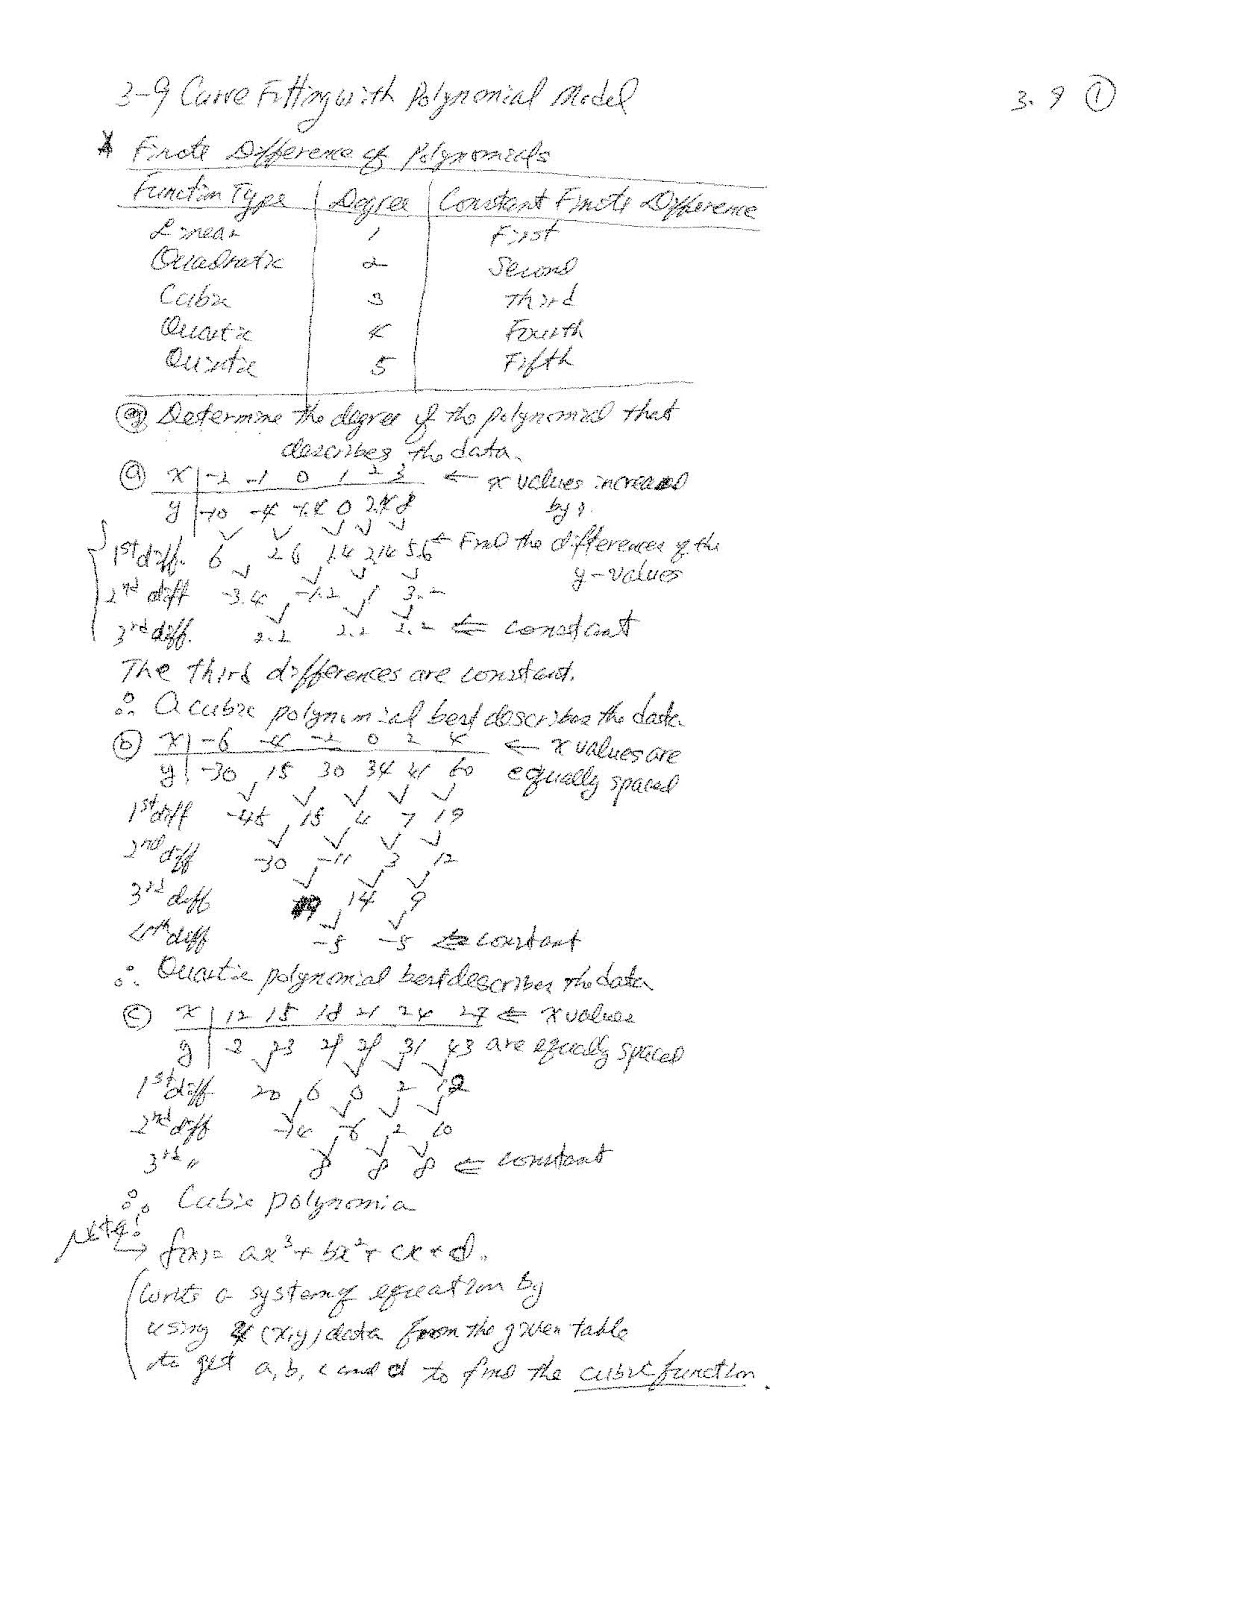 3-9 Curve Fitting with Polynomial Model
3.9 ①
* Finite Difference of Polynomials
Function Type | Degree | Constant Finite Difference
Linear 1 First
Quadratic 2 Second
Cubic 3 Third
Quartic 4 Fourth
Quintic 5 Fifth
eg Determine the degree of the polynomial that
describes the data.
ⓐ x | -2 -1 0 1 2 3 ← x values increased
y | -10 -4 -1.4 0 2.4 8 by 1.
1st diff. 6 2.6 1.4 2.4 5.6 ← Find the differences of the
y-values
2nd diff -3.4 -1.2 1 3.2
3rd diff. 2.2 2.2 2.2 ⇐ constant
The third differences are constant.
∴ A cubic polynomial best describes the data
ⓑ x | -6 -4 -2 0 2 4 ← x values are
y | -30 15 30 34 41 60 equally spaced
1st diff -45 15 4 7 19
2nd diff -30 -11 3 12
3rd diff 19 14 9
4th diff -5 -5 ⇐ constant
∴ Quartic polynomial best describes the data
ⓒ x | 12 15 18 21 24 27 ⇐ x values
y | 3 23 29 29 31 43 are equally spaced
1st diff 20 6 0 2 12
2nd diff -14 -6 2 10
3rd " 8 8 8 ⇐ constant
∴ Cubic polynomia
Note!
→ f(x) = ax³ + bx² + cx + d.
(Write a system of equation by
using 4 (x,y) data from the given table
to get a, b, c and d to find the cubic function.